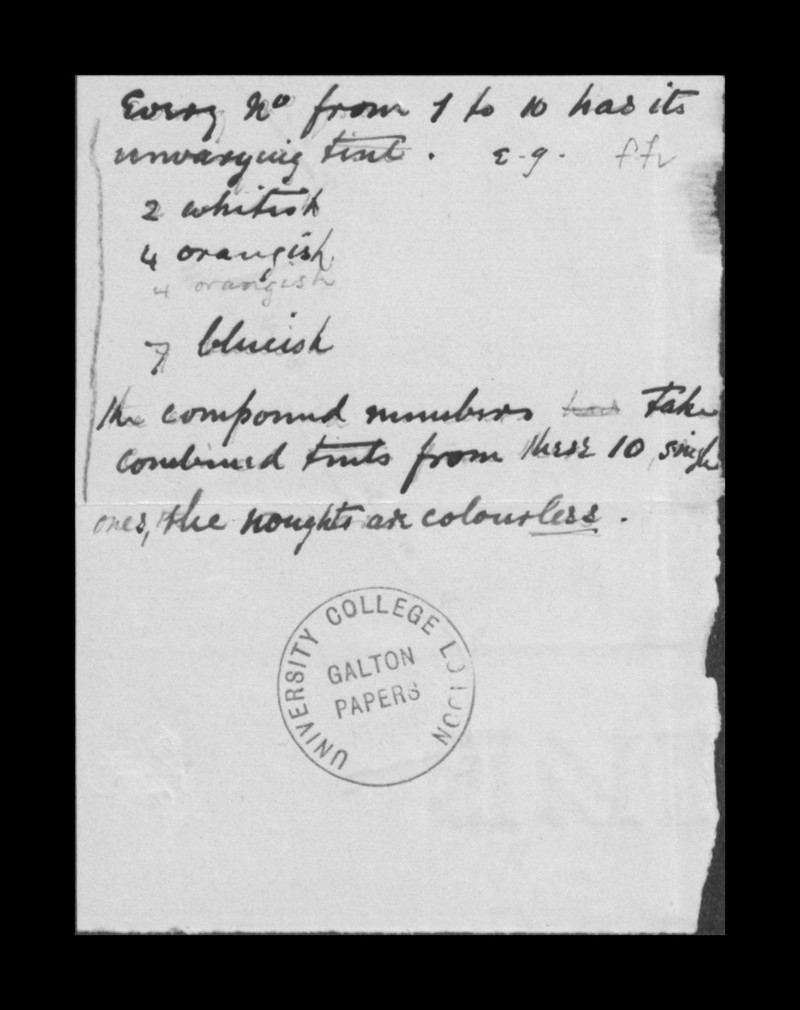 Every No from 1 to 10 has its
unvarying tint. e.g.
2 whitish
4 orangish
4 orangish
7 blueish
The compound numbers had take
combined tints from these 10 single
ones, the noughts are colourless.
UNIVERSITY COLLEGE LONDON
GALTON
PAPERS